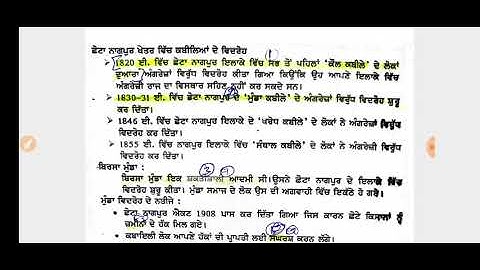 ਛੋਟਾ ਨਾਗਪੁਰ ਖੇਤਰ ਵਿੱਚ ਕਬੀਲਿਆਂ ਦੇ ਵਿਦਰੋਹ
➢ 1820 ਈ. ਵਿੱਚ ਛੋਟਾ ਨਾਗਪੁਰ ਇਲਾਕੇ ਵਿੱਚ ਸਭ ਤੋਂ ਪਹਿਲਾਂ 'ਕੋਲ ਕਬੀਲੇ' ਦੇ ਲੋਕਾਂ
ਦੁਆਰਾ ਅੰਗਰੇਜ਼ਾਂ ਵਿਰੁੱਧ ਵਿਦਰੋਹ ਕੀਤਾ ਗਿਆ ਕਿਉਂਕਿ ਉਹ ਆਪਣੇ ਇਲਾਕੇ ਵਿੱਚ
ਅੰਗਰੇਜ਼ੀ ਰਾਜ ਦਾ ਵਿਸਥਾਰ ਸਹਿਣ ਨਹੀਂ ਕਰ ਸਕਦੇ ਸਨ।
➢ 1830-31 ਈ. ਵਿੱਚ ਛੋਟਾ ਨਾਗਪੁਰ ਦੇ 'ਮੁੰਡਾ ਕਬੀਲੇ' ਦੇ ਅੰਗਰੇਜ਼ਾਂ ਵਿਰੁੱਧ ਵਿਦਰੋਹ ਸ਼ੁਰੂ
ਕਰ ਦਿੱਤਾ।
➢ 1846 ਈ. ਵਿੱਚ ਛੋਟਾ ਨਾਗਪੁਰ ਇਲਾਕੇ ਦੇ 'ਖਰੋਧ ਕਬੀਲੇ' ਦੇ ਲੋਕਾਂ ਨੇ ਅੰਗਰੇਜ਼ਾਂ ਵਿਰੁੱਧ
ਵਿਦਰੋਹ ਕਰ ਦਿੱਤਾ।
➢ 1855 ਈ. ਵਿੱਚ ਛੋਟਾ ਨਾਗਪੁਰ ਇਲਾਕੇ 'ਸੰਥਾਲ ਕਬੀਲੇ' ਦੇ ਲੋਕਾਂ ਨੇ ਅੰਗਰੇਜ਼ੀ ਵਿਰੁੱਧ
ਵਿਦਰੋਹ ਕਰ ਦਿੱਤਾ।
ਬਿਰਸਾ ਮੁੰਡਾ:
ਬਿਰਸਾ ਮੁੰਡਾ ਇਕ ਸ਼ਕਤੀਸ਼ਾਲੀ ਆਦਮੀ ਸੀ। ਉਸਨੇ ਛੋਟਾ ਨਾਗਪੁਰ ਦੇ ਇਲਾਕੇ ਵਿੱਚ
ਵਿਦਰੋਹ ਸ਼ੁਰੂ ਕੀਤਾ। ਮੁੰਡਾ ਸਮਾਜ ਦੇ ਲੋਕ ਉਸ ਦੀ ਅਗਵਾਹੀ ਵਿੱਚ ਇਕੱਠੇ ਹੋ ਗਏ।
ਮੁੰਡਾ ਵਿਦਰੋਹ ਦੇ ਨਤੀਜੇ:
• ਛੋਟਾ ਨਾਗਪੁਰ ਐਕਟ 1908 ਪਾਸ ਕਰ ਦਿੱਤਾ ਗਿਆ ਜਿਸ ਕਾਰਨ ਛੋਟੇ ਕਿਸਾਨਾਂ ਨੂੰ
ਜ਼ਮੀਨਾਂ ਦੇ ਹੱਕ ਮਿਲ ਗਏ।
• ਕਬਾਇਲੀ ਲੋਕ ਆਪਣੇ ਹੱਕਾਂ ਦੀ ਪ੍ਰਾਪਤੀ ਲਈ ਸੰਘਰਸ਼ ਕਰਨ ਲੱਗੇ।